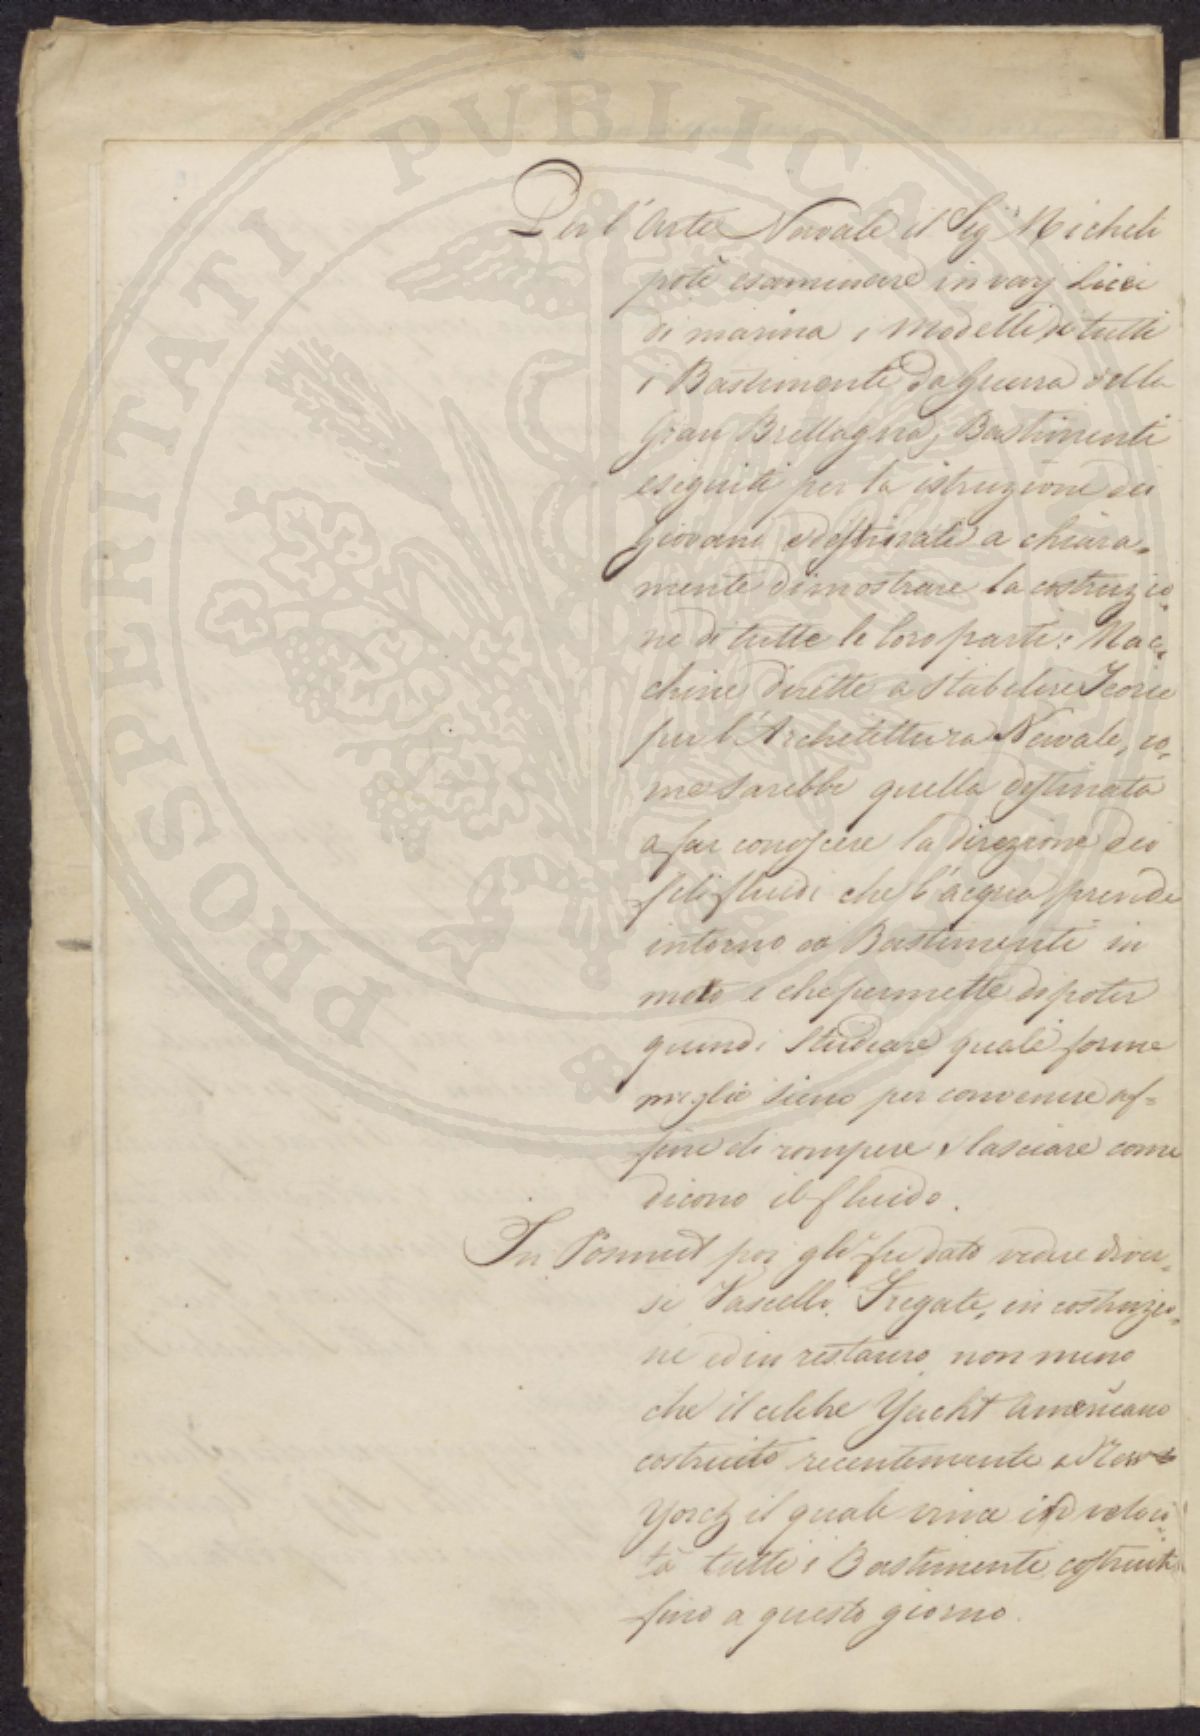 PROSPERITATI PUBLICAE
Per l'Arte Navale il Sig. Micheli
potè esaminare in varj Licei
di marina i Modelli di tutti
i Bastimenti da Guerra della
Gran Brettagna, Bastimenti
eseguiti per la istruzione dei
Giovani e destinati a chiara=
mente dimostrare la costruzio=
ne di tutte le loro parti: Mac=
chine dirette a stabilire Teorie
per l'Architettura Navale, co=
me sarebbe quella destinata
a far conoscere la direzione dei
fili fluidi che l'acqua prende
intorno ai Bastimenti in
moto e che permette di poter
quindi studiare quale forme
meglio sieno per convenire af=
fine di rompere e lasciare come
dicono il fluido.
In poi gli fu dato vedere diver=
si Vascelli, Fregate, in costruzio=
ne ed in restauro, non meno
che il celebre Yacht Americano
costruito recentemente a New=
Yorck il quale vince in veloci=
tà tutti i Bastimenti costruiti
fino a questo giorno.